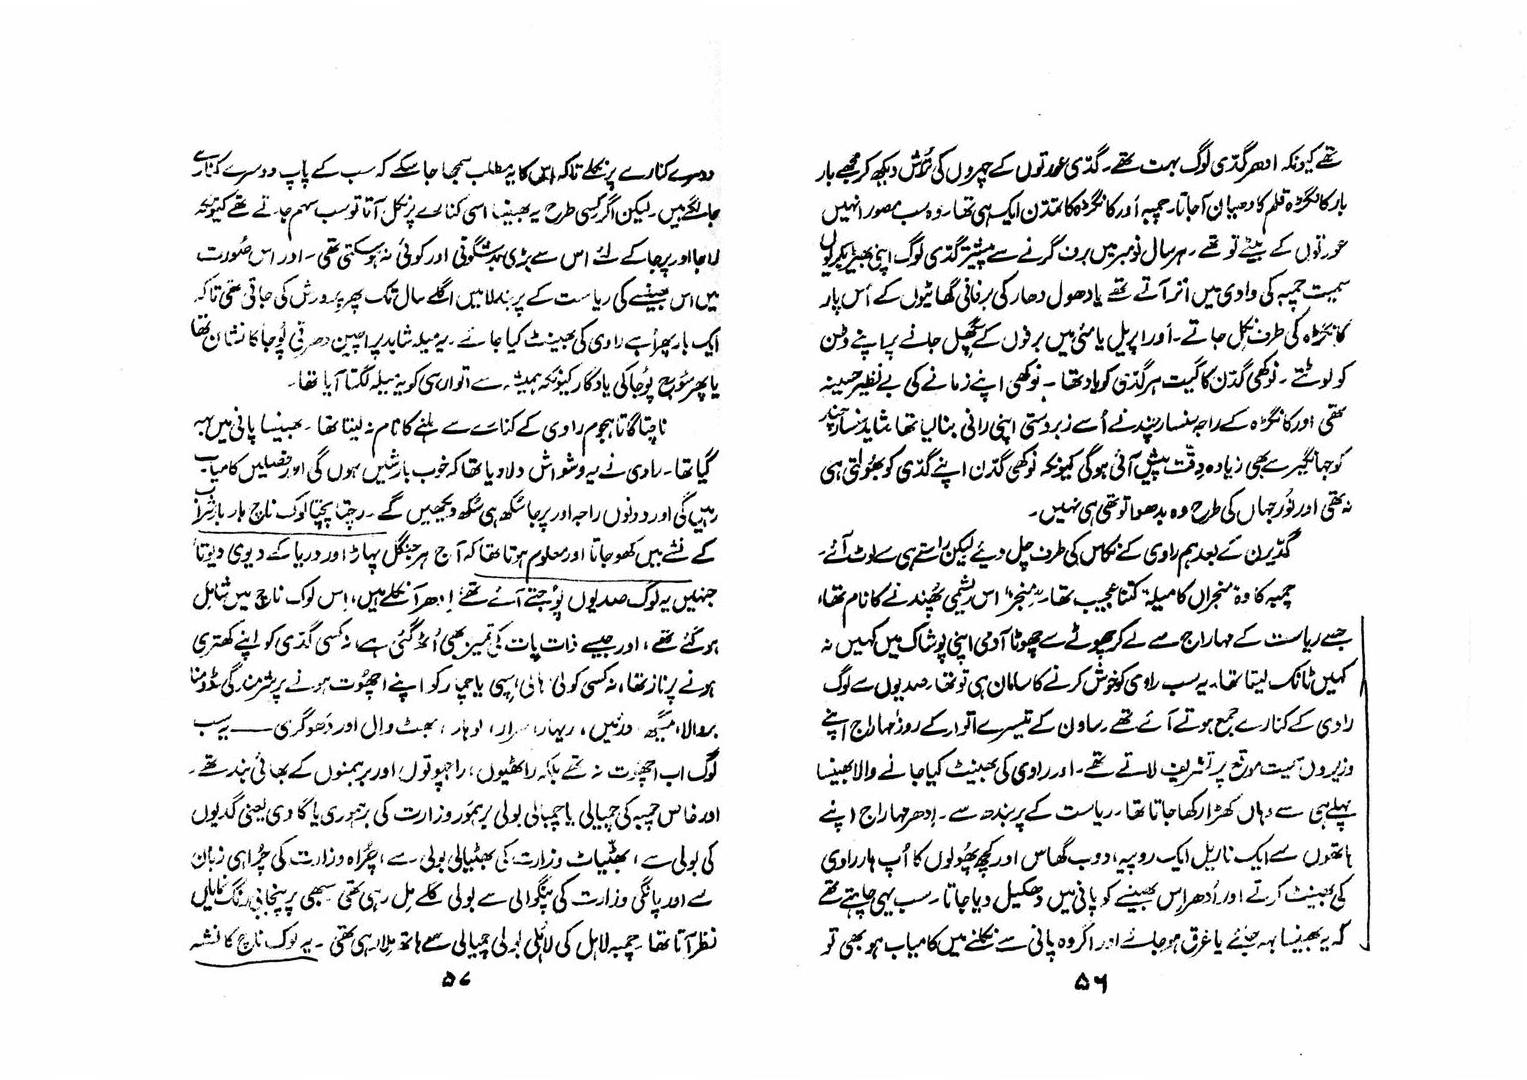 تھے کیونکہ ادھر گدی لوگ بہت تھے۔ گدی عورتوں کے چہروں کی تراش دیکھ کر مجھے بار
بار کانگڑہ قلم کا دھیان آ جاتا۔ چمپہ اور کانگڑہ کا تمدن ایک ہی تھا۔ وہ سب مصور انہیں
عورتوں کے بیٹے تو تھے۔ ہر سال نومبر میں برف گرنے سے پیشتر گدی لوگ اپنی بھیڑ بکریوں
سمیت چمپہ کی وادی میں اتر آتے تھے یا دھول دھار کی برفانی گھاٹیوں کے اُس پار
کانگڑہ کی طرف نکل جاتے۔ اور اپریل یا مئی میں برفوں کے پگھل جانے پر اپنے وطن
کو لوٹتے۔ نوکھی گدن کا گیت ہر گدی کو یاد تھا۔ نوکھی اپنے زمانے کی بے نظیر حسینہ
تھی اور کانگڑہ کے راجہ سنسار چند نے اُسے زبردستی اپنی رانی بنا لیا تھا شاید سنسار چند
کو جہانگیر سے بھی زیادہ دقت پیش آئی ہو گی کیونکہ نوکھی گدن اپنے گدی کو بھولتی ہی
نہ تھی اور نور جہاں کی طرح وہ بدھوا تو تھی ہی نہیں۔
گڈیرن کے بعد ہم راوی کے نکاس کی طرف چل دیئے لیکن راستے ہی سے لوٹ آئے۔
چمپہ کا وہ منجراں کا میلہ کتنا عجیب تھا۔ یہ منجر اس ریشمی پھندنے کا نام تھا،
جسے ریاست کے مہاراج سے لے کر چھوٹے سے چھوٹا آدمی اپنی پوشاک میں کہیں نہ
کہیں ٹانک لیتا تھا۔ یہ سب راوی کو خوش کرنے کا سامان ہی تو تھا۔ صدیوں سے لوگ
راوی کے کنارے جمع ہوتے آئے تھے۔ ساون کے تیسرے اتوار کے روز مہاراج اپنے
وزیروں سمیت موقع پر تشریف لاتے تھے۔ اور راوی کی بھینٹ کیا جانے والا بھینسا
پہلے ہی سے وہاں کھڑا رکھا جاتا تھا۔ ریاست کے پربندھ سے۔ اِدھر مہاراج اپنے
ہاتھوں سے ایک ناریل ایک روپیہ، دوب گھاس اور کچھ پھولوں کا اُپہار راوی
کی بھینٹ کرتے اور اُدھر اس بھینسے کو پانی میں دھکیل دیا جاتا۔ سب یہی چاہتے تھے
کہ یہ بھینسا بہہ جائے یا غرق ہو جائے اور اگر وہ پانی سے نکلنے میں کامیاب ہو بھی تو
۵۶
دوسرے کنارے پر نکلے تاکہ اس کا یہ مطلب سمجھا جا سکے کہ سب کے پاپ دوسرے کنارے
جا لگے ہیں۔ لیکن اگر کسی طرح یہ بھینسا اسی کنارے پر نکل آتا تو سب سہم جاتے تھے کیونکہ
راجا اور پرجا کے لئے اس سے بڑی بدشگونی اور کوئی نہ ہو سکتی تھی۔ اور اس صورت
میں اس بھینسے کی ریاست کے پربندھ میں اگلے سال تک پھر پرورش کی جاتی تھی تاکہ
ایک بار پھر اُسے راوی کی بھینٹ کیا جائے۔ یہ میلہ شاید پراچین دھرتی پوجا کا نشان تھا
یا پھر سورج پوجا کی یادگار کیونکہ ہمیشہ سے اتوار ہی کو یہ میلہ لگتا آیا تھا۔
ناچتا گاتا ہجوم راوی کے کنارے سے ہلنے کا نام نہ لیتا تھا۔ بھینسا پانی میں بہہ
گیا تھا۔ راوی نے یہ وشواش دلا دیا تھا کہ خوب بارشیں ہوں گی اور فصلیں کامیاب
رہیں گی اور دونوں راجہ اور پرجا سُکھ ہی سُکھ دیکھیں گے۔ رچتا پچتا لوک ناچ بار بار شراب
کے نشے میں کھو جاتا اور معلوم ہوتا تھا کہ آج ہر جنگل پہاڑ اور دریا کے دیوی دیوتا
جنہیں یہ لوگ صدیوں پوجتے آئے تھے اِدھر آ نکلے ہیں، اس لوک ناچ میں شامل
ہو گئے تھے، اور جیسے ذات پات کی تمیز بھی اُڑ گئی ہے، نہ کسی گدی کو اپنے کھتری
ہونے پر ناز تھا، نہ کسی کولی ہالی، سپی یا چمار کو اپنے اچھوت ہونے پر شرمندگی ڈومنا
بروالا، میگھ ورئیں، ریہار، سرار، لوہار، بھٹ وال اور دھوگری — یہ سب
لوگ اب اچھوت نہ تھے بلکہ راٹھیوں، راجپوتوں اور برہمنوں کے بھائی بند تھے۔
اور خاص چمپہ کی چمیالی یا چمبالی بولی برہمور وزارت کی برہموری یا گادی یعنی گدیوں
کی بولی سے، بھٹیات وزارت کی بھٹیالی بولی سے، چُراہ وزارت کی چُراہی زبان
سے اور پانگی وزارت کی پنگوالی سے بولی گلے مل رہی تھی سبھی پر پنجابی رنگ نمایاں
نظر آتا تھا چمپہ لاہل کی لاہلی بولی چمیالی سے ہاتھ ملا رہی تھی۔ یہ لوک ناچ کا نشہ
۵۷